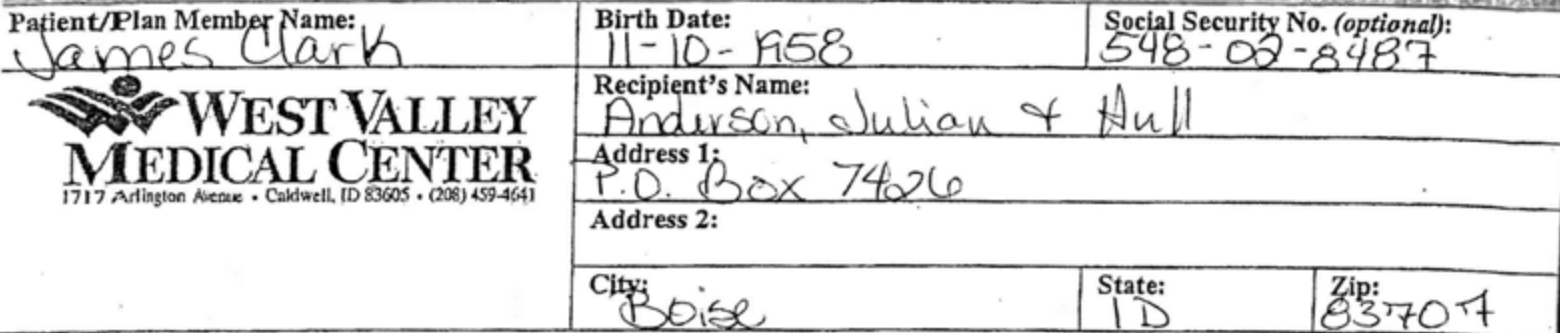 Patient/Plan Member Name:
James Clark
Birth Date:
11-10-1958
Social Security No. (optional):
548-02-8487
WEST VALLEY
MEDICAL CENTER
1717 Arlington Avenue • Caldwell, ID 83605 • (208) 459-4641
Recipient's Name:
Anderson, Julian & Hull
Address 1:
P.O. Box 7426
Address 2:
City:
Boise
State:
ID
Zip:
83707